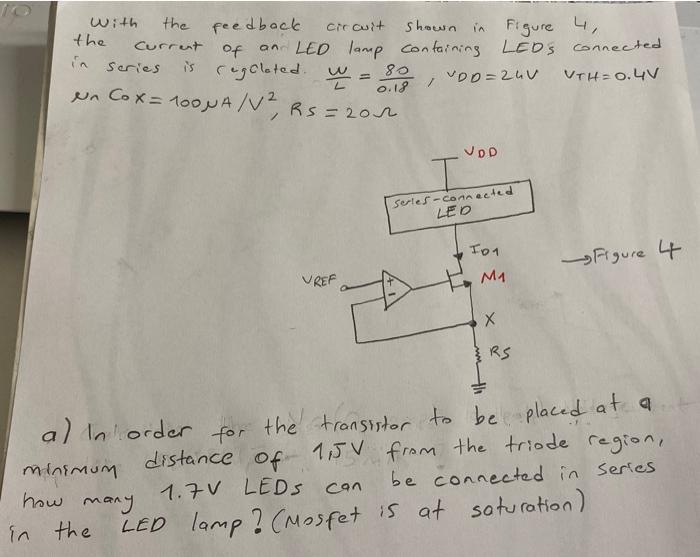 With the feedback circuit shown in Figure 4,
the current of an LED lamp containing LEDs connected
in series is regulated. W/L = 80/0.18, VDD=24V VTH=0.4V
μn Cox=100μA/V², RS=20Ω
VDD
series-connected
LED
ID1
→Figure 4
VREF
+
M1
-
X
RS
a) In order for the transistor to be placed at a
minimum distance of 1,5V from the triode region,
how many 1.7V LEDs can be connected in series
in the LED lamp? (Mosfet is at saturation)